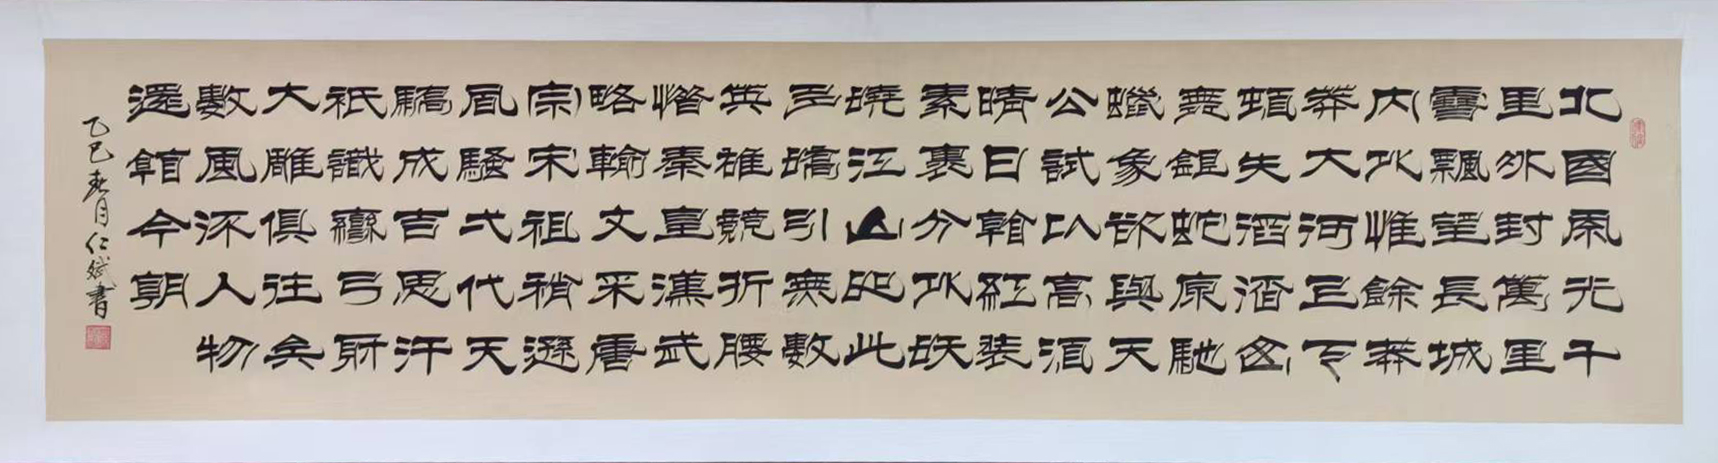 北國風光千
里冰封萬里
雪飄望長城
内外惟餘莽
莽大河上下
頓失滔滔山
舞銀蛇原馳
蠟象欲與天
公試比高須
晴日看紅裝
素裹分外妖
嬈江山如此
多嬌引無數
英雄競折腰
惜秦皇漢武
略輸文采唐
宗宋祖稍遜
風騷弌代天
驕成吉思汗
祇識彎弓射
大雕俱往矣
數風流人物
還看今朝
乙巳春月仁斌書